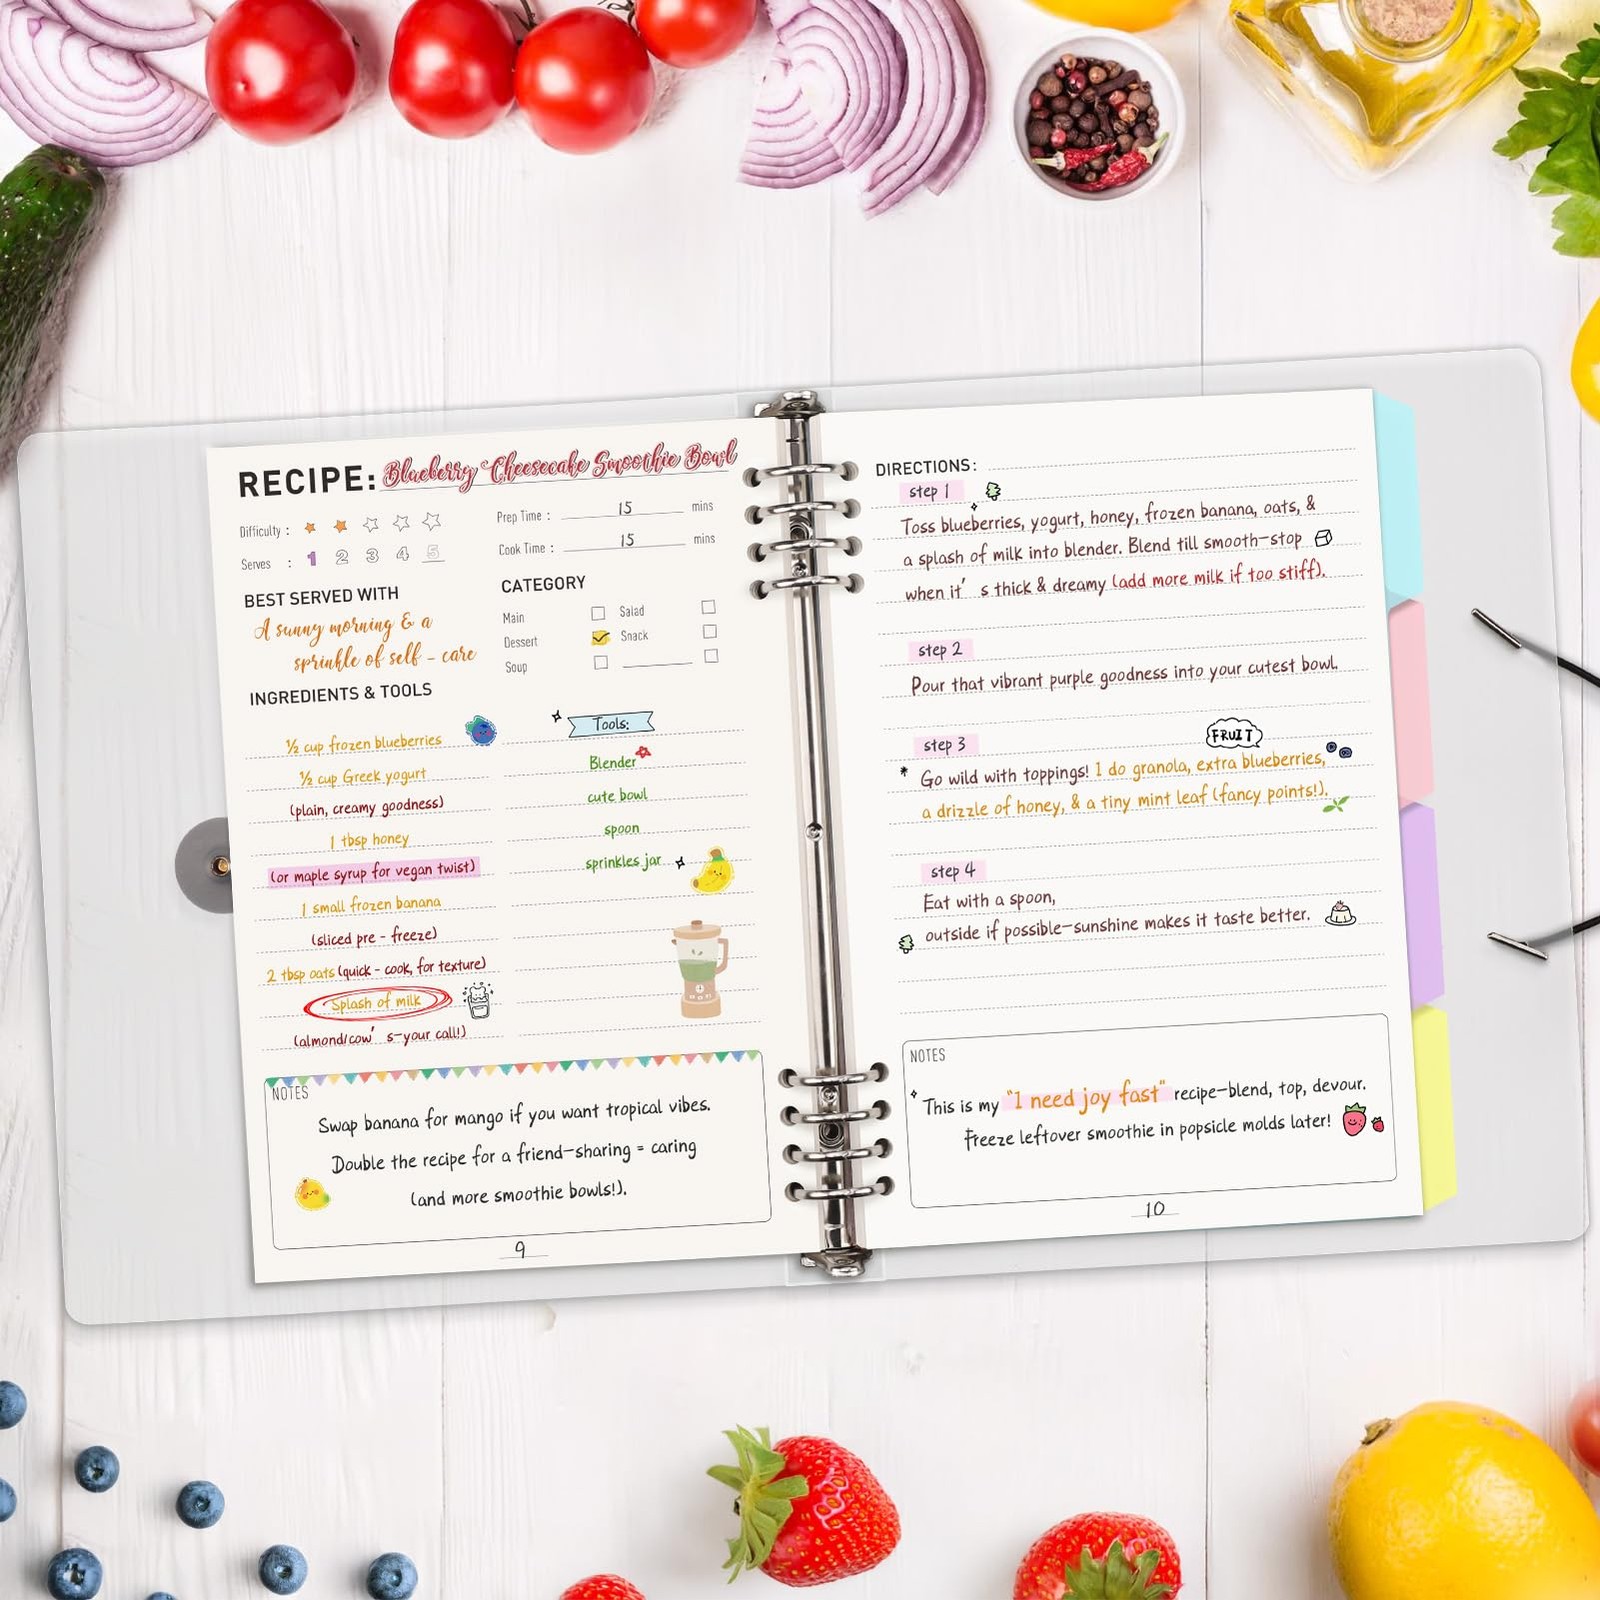 RECIPE: Blueberry Cheesecake Smoothie Bowl
Difficulty :
Serves : 1 2 3 4 5
Prep Time : 15 mins
Cook Time : 15 mins
BEST SERVED WITH
A sunny morning & a
sprinkle of self - care
CATEGORY
Main
Salad
Dessert
Snack
Soup
INGREDIENTS & TOOLS
½ cup frozen blueberries
½ cup Greek yogurt
(plain, creamy goodness)
1 tbsp honey
(or maple syrup for vegan twist)
1 small frozen banana
(sliced pre - freeze)
2 tbsp oats (quick - cook, for texture)
Splash of milk
(almond/cow' s-your call!)
Tools:
Blender
cute bowl
spoon
sprinkles jar
NOTES
Swap banana for mango if you want tropical vibes.
Double the recipe for a friend-sharing = caring
(and more smoothie bowls!).
9
DIRECTIONS:
step 1
Toss blueberries, yogurt, honey, frozen banana, oats, &
a splash of milk into blender. Blend till smooth-stop
when it' s thick & dreamy (add more milk if too stiff).
step 2
Pour that vibrant purple goodness into your cutest bowl.
step 3
FRUIT
Go wild with toppings! I do granola, extra blueberries,
a drizzle of honey, & a tiny mint leaf (fancy points!).
step 4
Eat with a spoon,
outside if possible-sunshine makes it taste better.
NOTES
This is my "I need joy fast" recipe-blend, top, devour.
Freeze leftover smoothie in popsicle molds later!
10